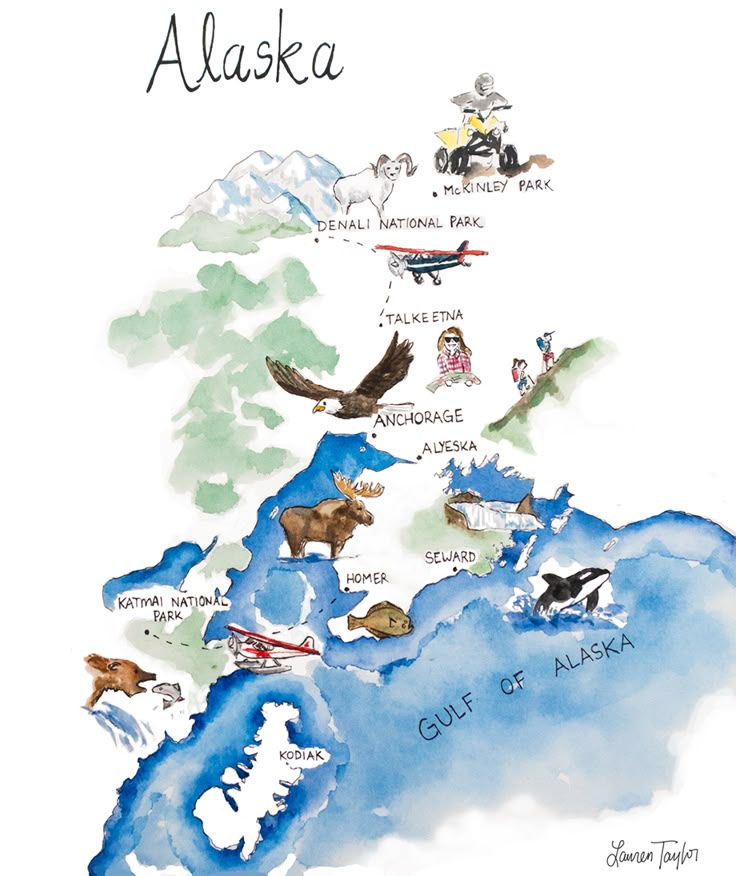 Alaska
McKINLEY PARK
DENALI NATIONAL PARK
TALKEETNA
ANCHORAGE
ALYESKA
SEWARD
HOMER
KATMAI NATIONAL
PARK
GULF OF ALASKA
KODIAK
Lauren Taylor